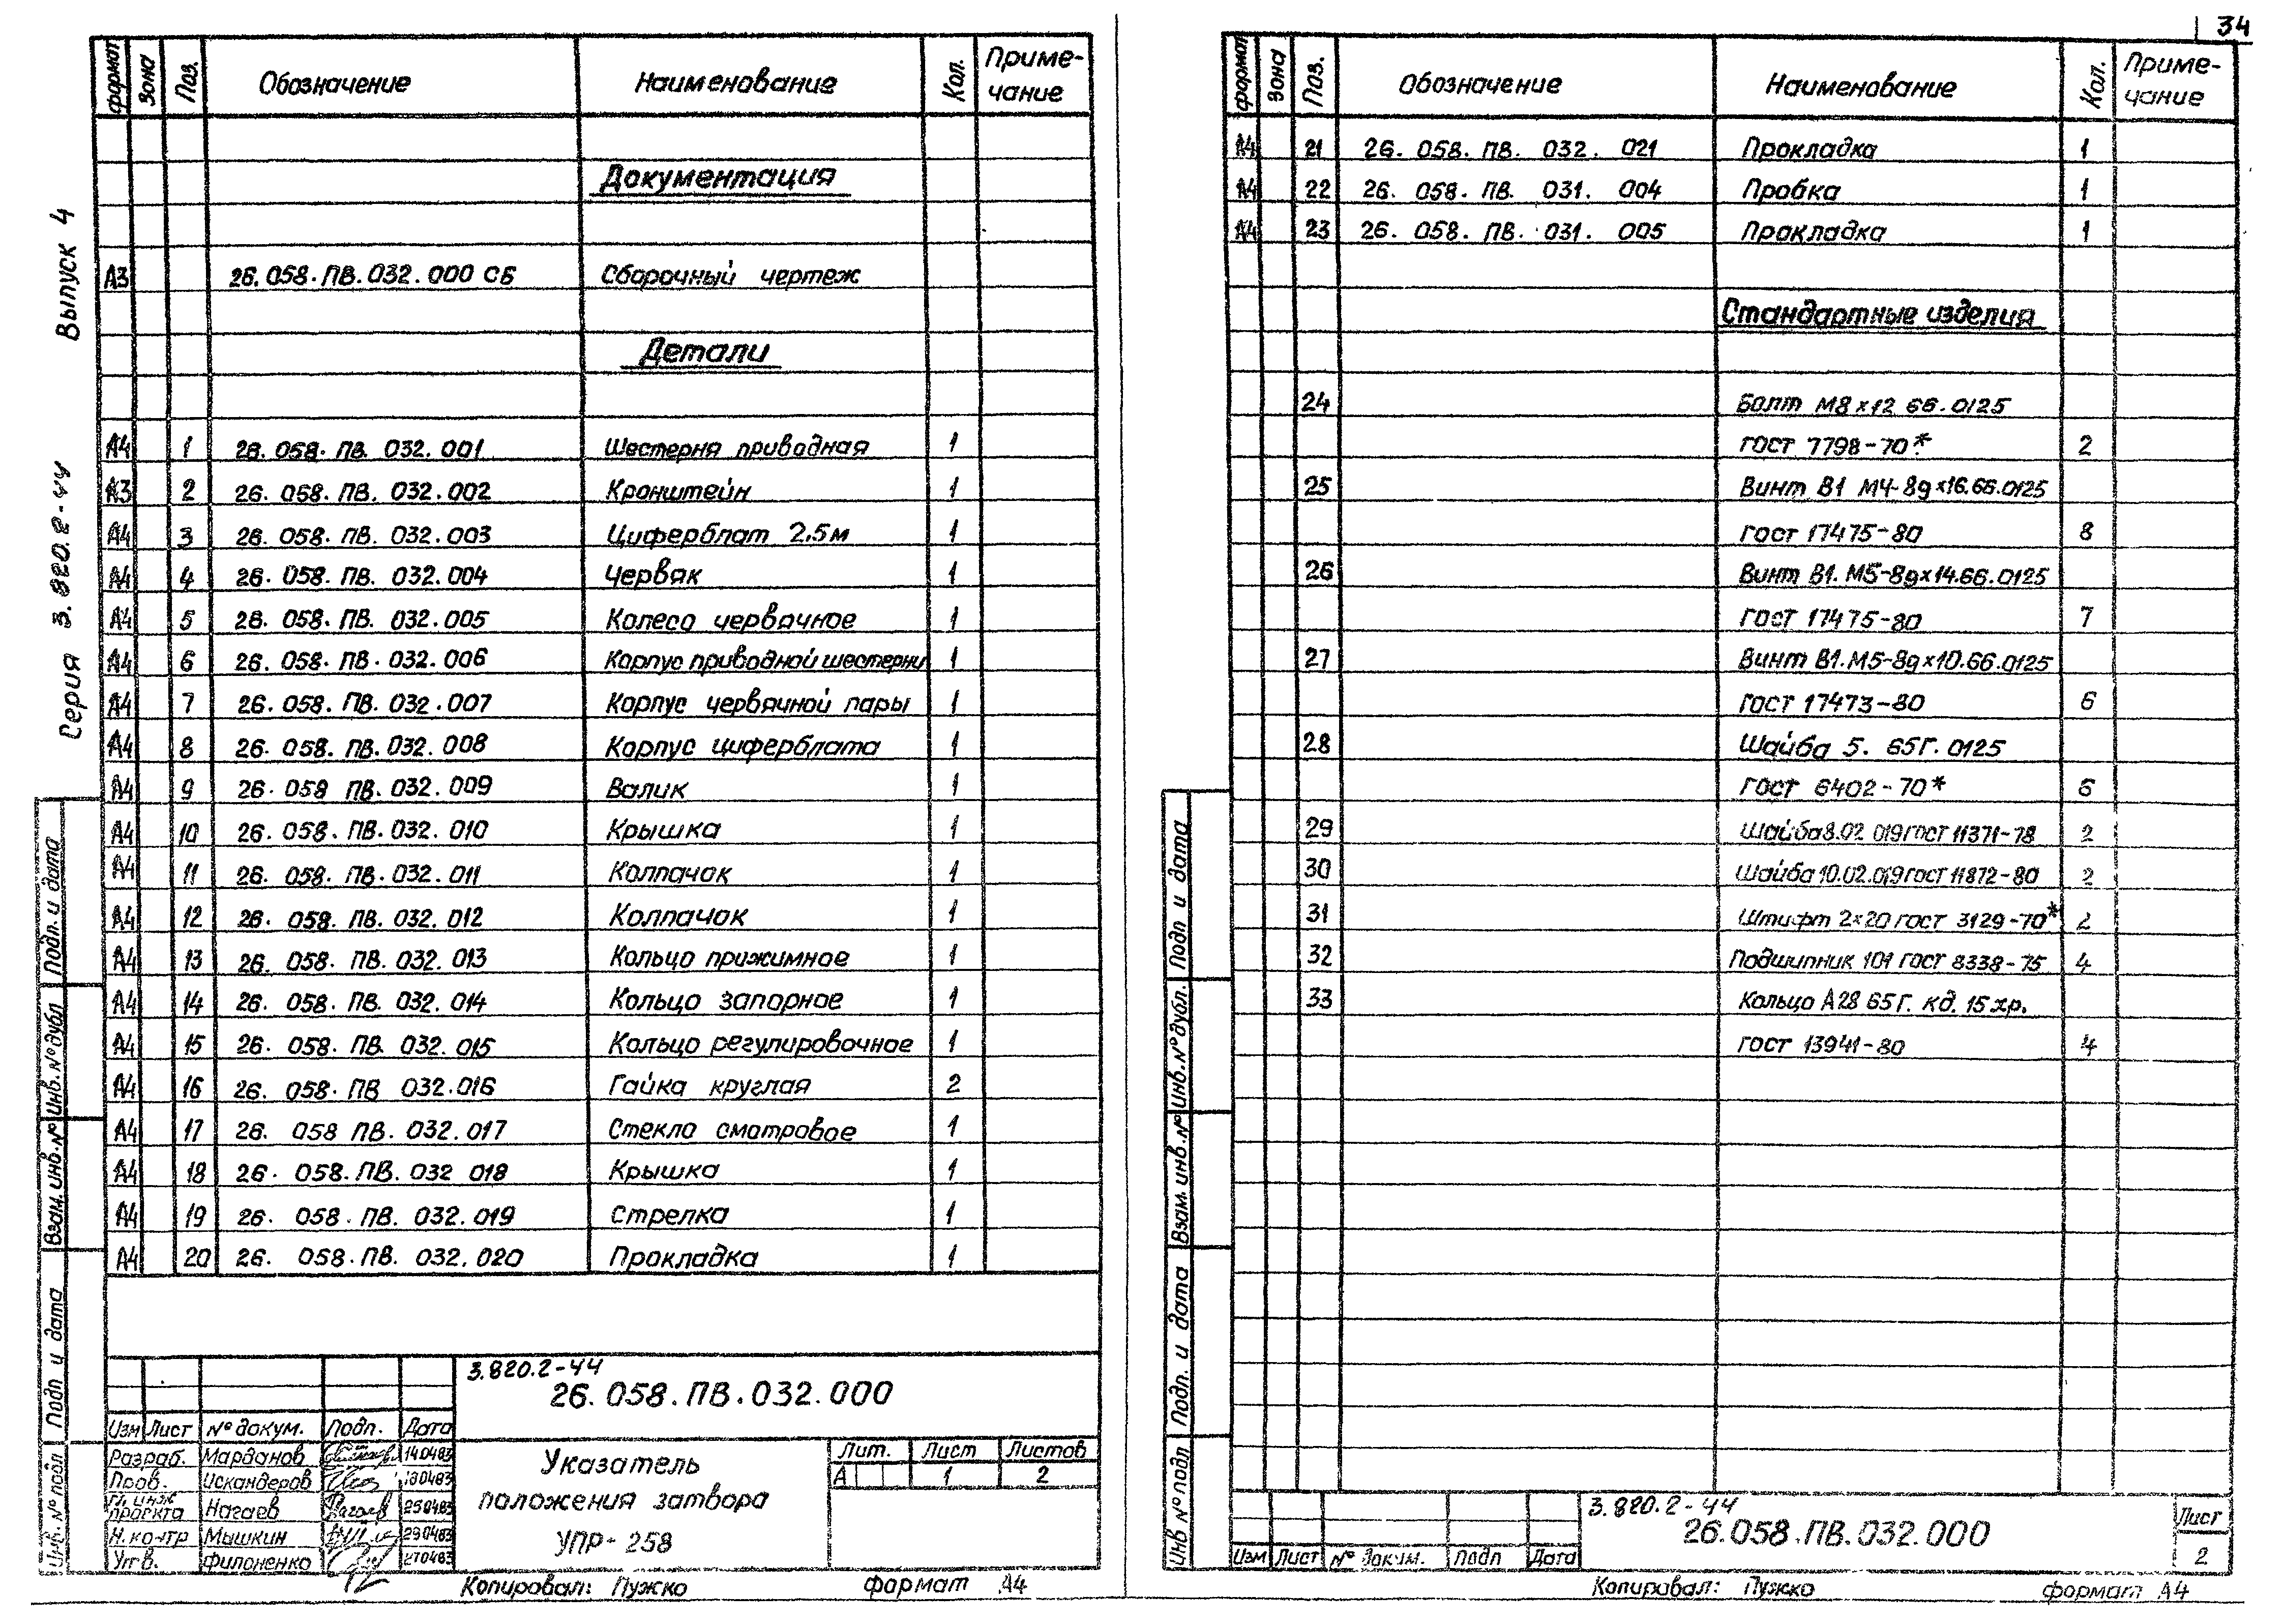 34
Выпуск 4
Серия 3.820.2-44
Формат Зона Поз. Обозначение Наименование Кол. Приме-
чание
Документация
А3 26.058.ПВ.032.000 СБ Сборочный чертеж
Детали
А4 1 26.058.ПВ.032.001 Шестерня приводная 1
А3 2 26.058.ПВ.032.002 Кронштейн 1
А4 3 26.058.ПВ.032.003 Циферблат 2,5м 1
А4 4 26.058.ПВ.032.004 Червяк 1
А4 5 26.058.ПВ.032.005 Колесо червячное 1
А4 6 26.058.ПВ.032.006 Корпус приводной шестерни 1
А4 7 26.058.ПВ.032.007 Корпус червячной пары 1
А4 8 26.058.ПВ.032.008 Корпус циферблата 1
А4 9 26.058 ПВ.032.009 Валик 1
А4 10 26.058.ПВ.032.010 Крышка 1
А4 11 26.058.ПВ.032.011 Колпачок 1
А4 12 26.058.ПВ.032.012 Колпачок 1
А4 13 26.058.ПВ.032.013 Кольцо прижимное 1
А4 14 26.058.ПВ.032.014 Кольцо запорное 1
А4 15 26.058.ПВ.032.015 Кольцо регулировочное 1
А4 16 26.058.ПВ 032.016 Гайка круглая 2
А4 17 26.058 ПВ.032.017 Стекло смотровое 1
А4 18 26.058.ПВ.032 018 Крышка 1
А4 19 26.058.ПВ.032.019 Стрелка 1
А4 20 26.058.ПВ.032.020 Прокладка 1
3.820.2-44
26.058.ПВ.032.000
Изм Лист № докум. Подп. Дата
Разраб. Марданов 140483
Пров. Искандеров 180483
Гл. инж.
проекта Нагаев 250483
Н.контр Мышкин 290483
Утв. Филоненко 270483
Указатель
положения затвора
УПР-258
Лит. Лист Листов
А 1 2
Копировал: Пужко формат А4
Инв. № подл Подп и дата Взам. инв. № Инв. № дубл Подп. и дата
Формат Зона Поз. Обозначение Наименование Кол. Приме-
чание
А4 21 26.058.ПВ.032.021 Прокладка 1
А4 22 26.058.ПВ.031.004 Пробка 1
А4 23 26.058.ПВ.031.005 Прокладка 1
Стандартные изделия
24 Болт М8х12 66.0125
ГОСТ 7798-70* 2
25 Винт В1 М4-8gх16.66.0125
ГОСТ 17475-80 8
26 Винт В1.М5-8gх14.66.0125
ГОСТ 17475-80 7
27 Винт В1.М5-8gх10.66.0125
ГОСТ 17473-80 6
28 Шайба 5. 65Г. 0125
ГОСТ 6402-70* 6
29 Шайба 8.02 019 ГОСТ 11371-78 2
30 Шайба 10.02.019 ГОСТ 11872-80 2
31 Штифт 2х20 ГОСТ 3129-70* 2
32 Подшипник 101 ГОСТ 8338-75 4
33 Кольцо А28 65Г. кд. 15хр.
ГОСТ 13941-80 4
3.820.2-44
26.058.ПВ.032.000
Изм Лист № докум. Подп Дата
Лист
2
Копировал: Пужко формат А4
Инв № подл Подп. и дата Взам. инв. № Инв. № дубл. Подп и дата